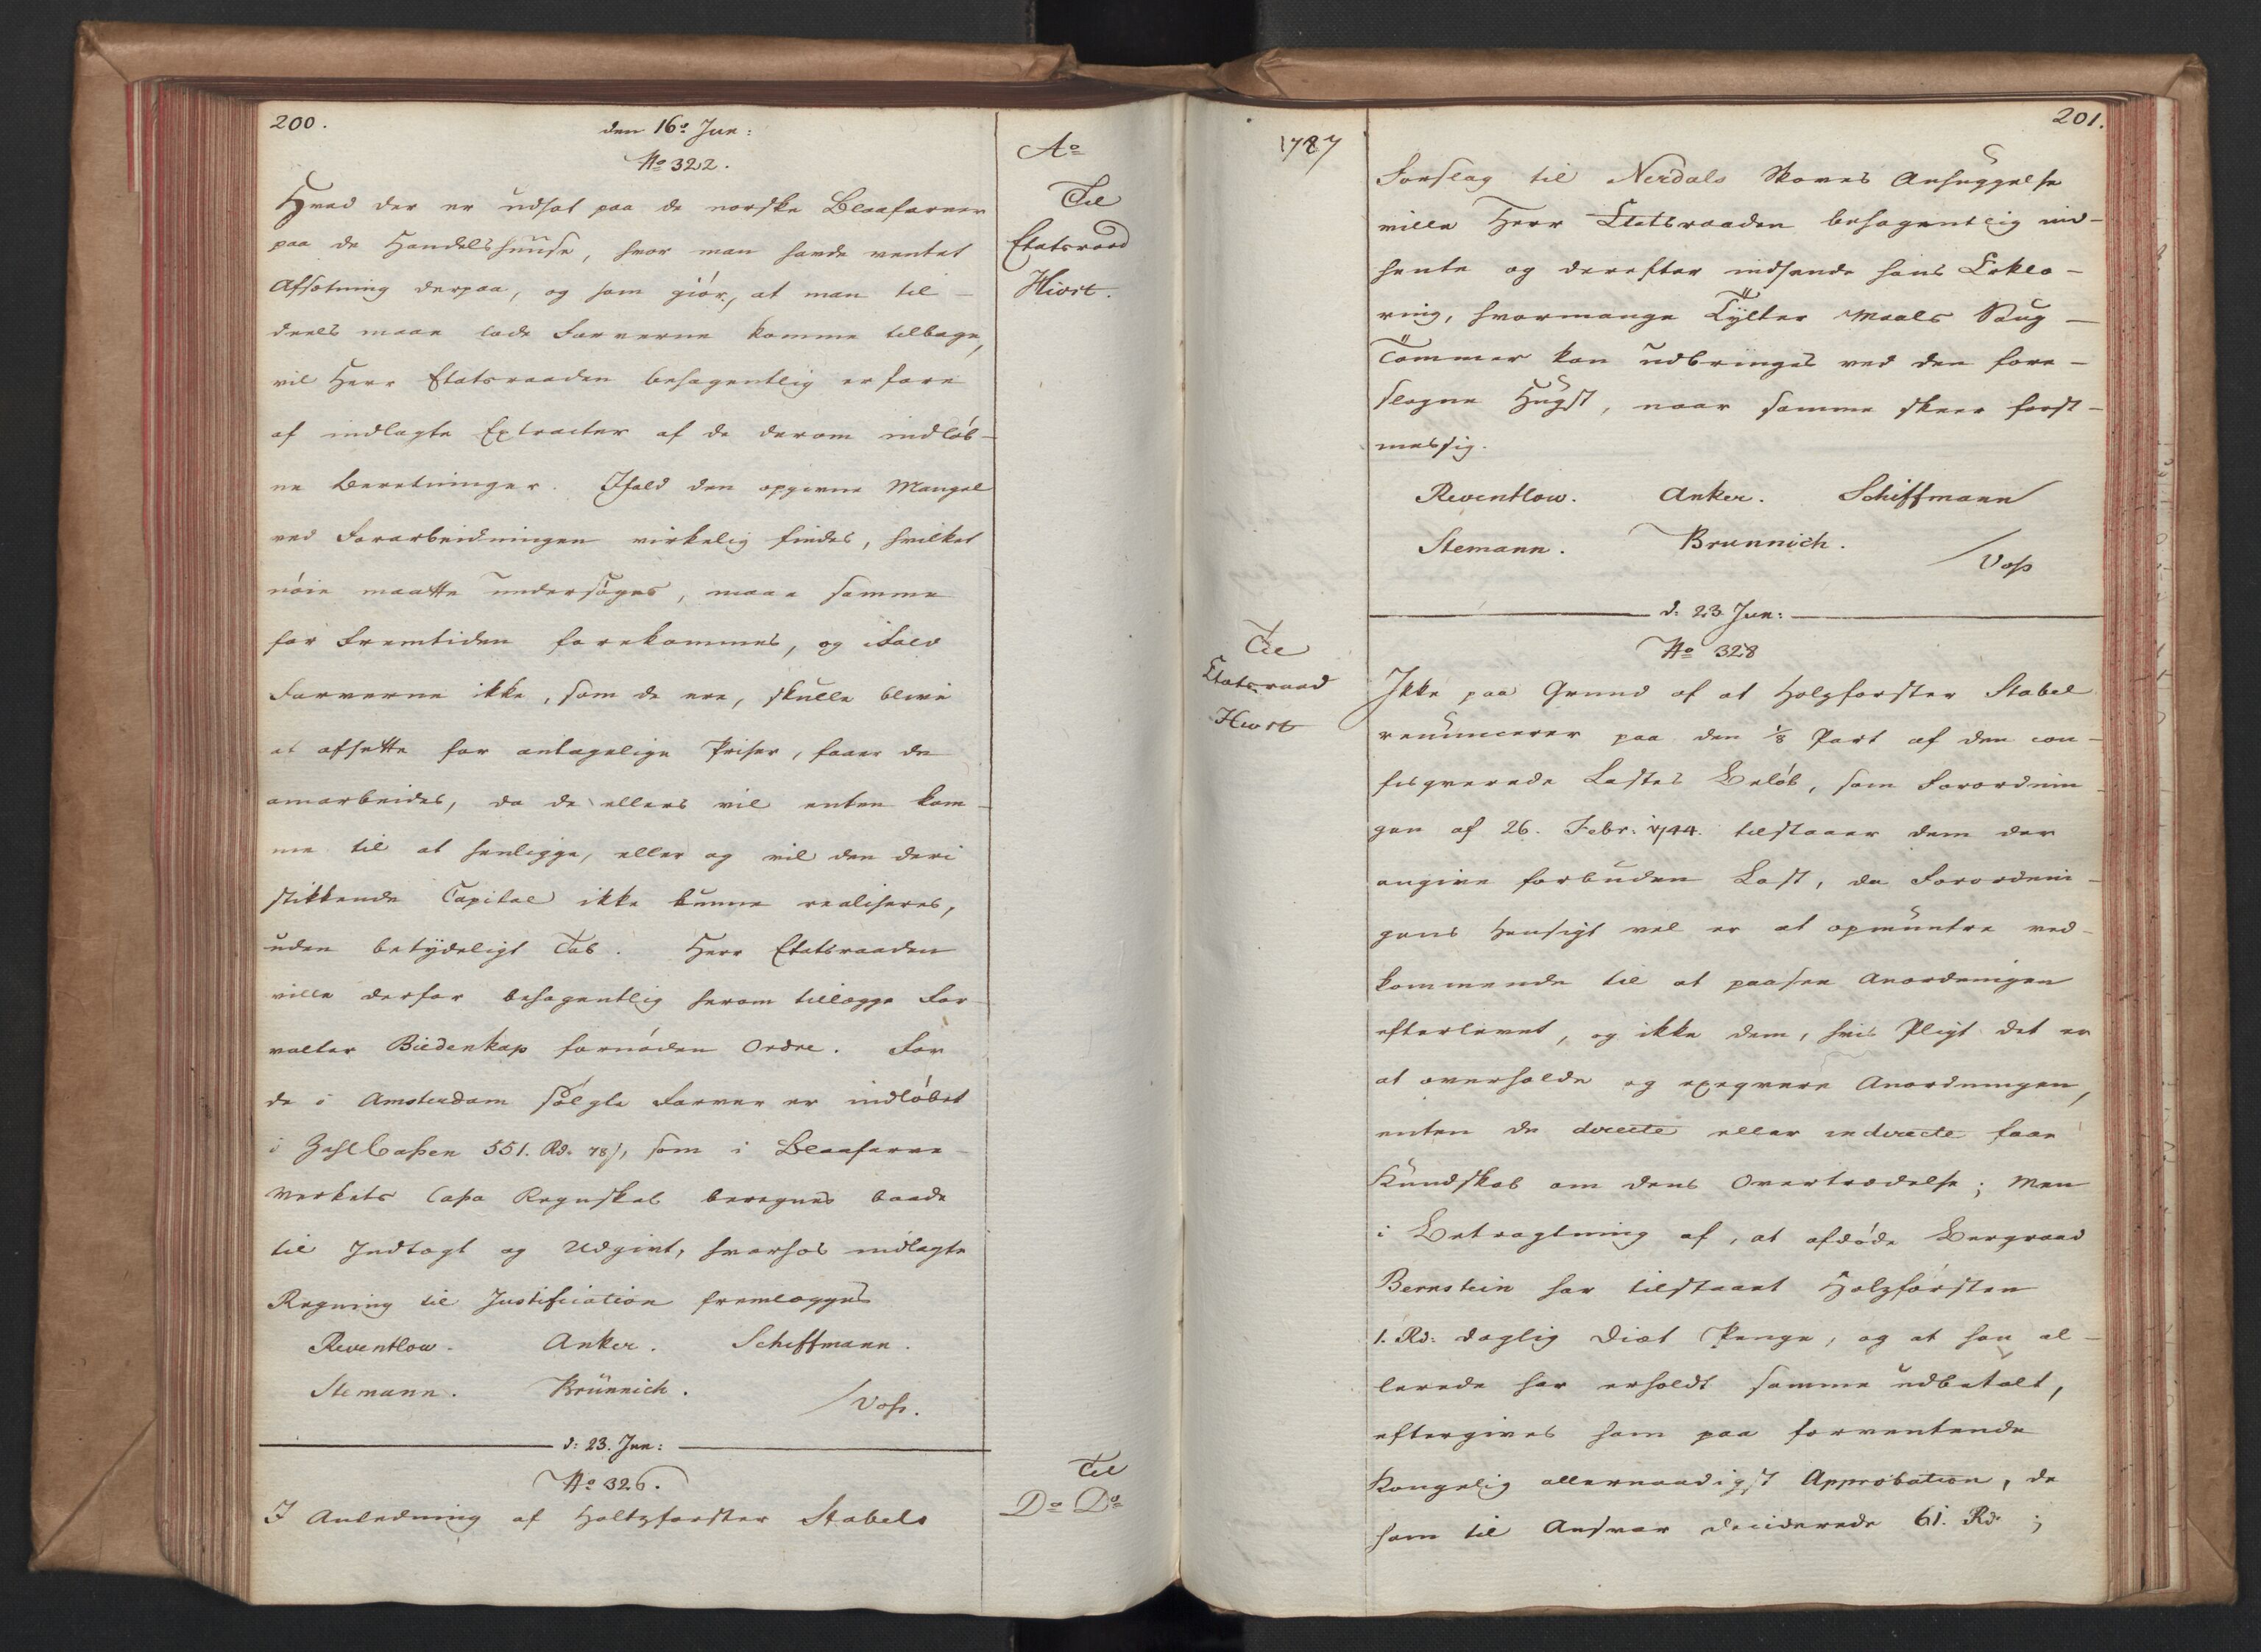 200.
den 16de Jun:
No 322.
Ao
Til
Etatsraad
Hiort.
Hvad der er udsat paa de norske Blaafarver
paa de Handelshuuse, hvor man havde ventet
Afsætning derpaa, og som giør, at man til-
deels maae lade Farverne komme tilbage,
vil Herr Etatsraaden behagentlig erfare
af indlagte Extracter af de derom indløb-
ne Beretninger. Ifald den opgivne Mangel
ved Forarbeidningen virkelig findes, hvilket
nøie maatte undersøges, maae samme
for Fremtiden forekommes, og ifald
Farverne ikke, som de ere, skulle blive
at afsette for antagelige Priser, faaer de
omarbeides, da de ellers vil enten kom-
me til at henligge, eller og vil den deri
stikkende Capital ikke kunne realiseres,
uden betydeligt Tab. Herr Etatsraaden
ville derfor behagentlig herom tillægge For-
valter Biedenkap fornøden Ordre. For
de i Amsterdam sølgte Farver er indløbet
i Zahlcassen 551. Rd. 78 s, som i Blaafarve-
Verkets Cassa Regnskab beregnes baade
til Indtægt og Udgivt, hvorhos indlagte
Regning til Justification fremlægges
Reventlow. Anker. Schiffmann.
Stemann. Brünnich.
/Voss.
d: 23. Jun:
No 326.
Til
Do Do
I Anledning af Holtzforster Stabels
201.
1787
Forslag til Nerdals Skoves Anhuggelse
ville Herr Etatsraaden behagentlig ind-
hente og derefter indsende hans Erklæ-
ring, hvormange Tylter Maals Saug-
Tømmer kan udbringes ved den fore-
slagne Hugst, naar samme skeer forst-
messig.
Reventlow. Anker. Schiffmann
Stemann. Brunnich.
/Voss
d: 23. Jun:
No 328
Til
Etatsraad
Hiort
Ikke paa Grund af at Holzforster Stabel
renuncerer paa den 1/3 Part af den con-
fisqverede Lastes Beløb, som Forordnin-
gen af 26. Febr: 1744. tilstaaer dem der
angive forbuden Last, da Forordnin-
gens Hensigt vel er at opmuntre ved-
kommende til at paasee Anordningen
efterlevet, og ikke dem, hvis Pligt det er
at overholde og exeqvere Anordningen,
enten de directe eller indirecte faae
Kundskab om dens Overtrædelse; Men
i Betragtning af, at afdøde Bergraad
Bernstein har tilstaaet Holzforsten
1. Rd: daglig Diæt Penge, og at han al-
lerede har erholdt samme udbetalt,
eftergives ham paa forventende
Kongelig allernaadigst Approbation, de
ham til Ansvar deciderede 61. Rd. ;